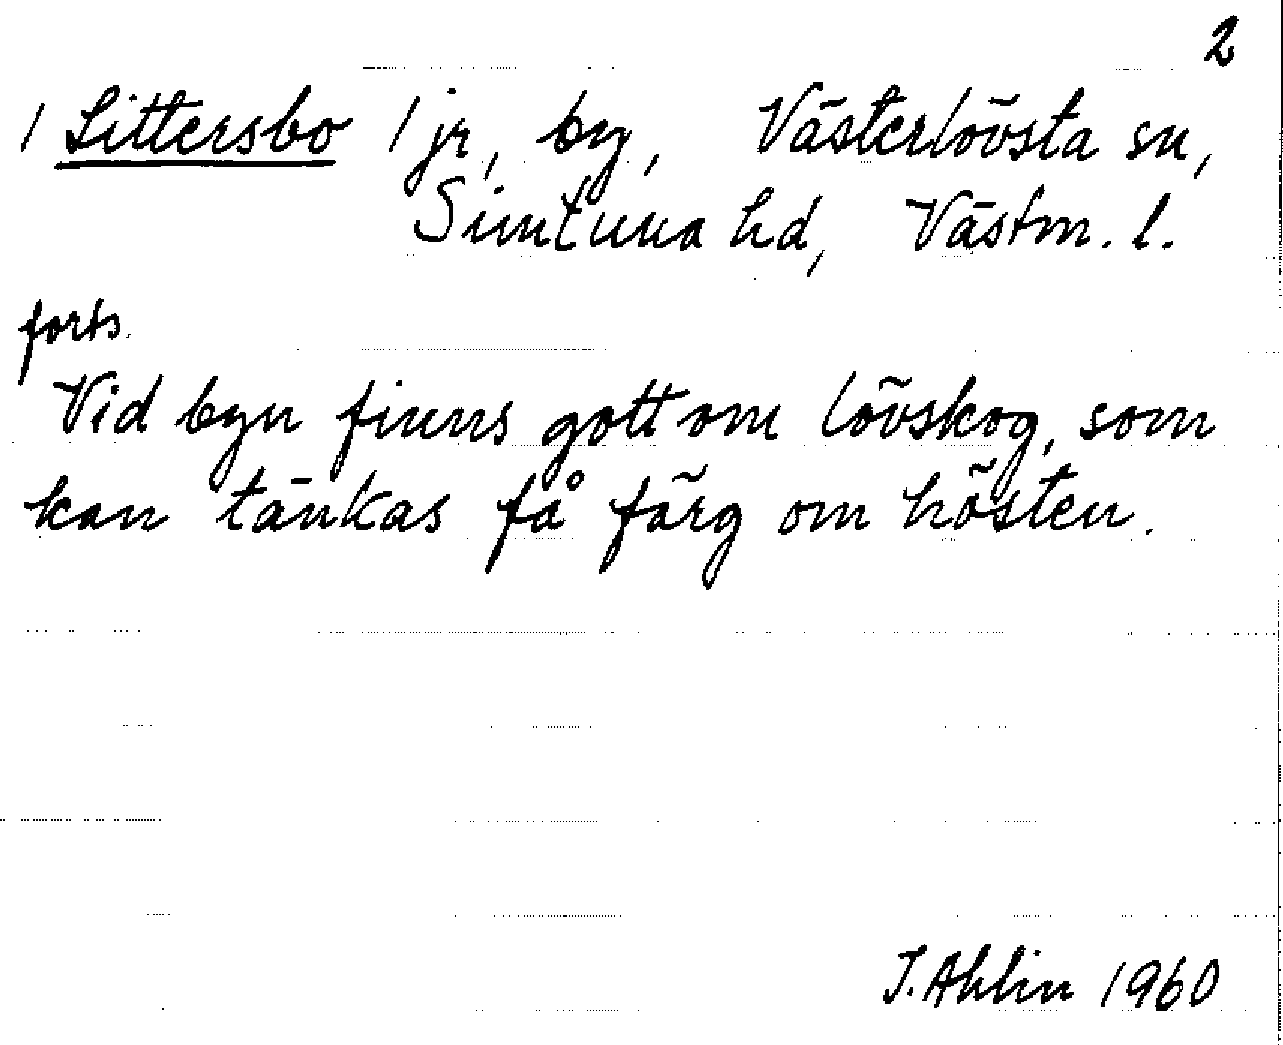 2
/ Littersbo / jr, by, Västerlövsta sn,
Simtuna hd, Västm. l.
forts.
Vid byn finns gott om lövskog, som
kan tänkas få färg om hösten.
I. Ahlin 1960